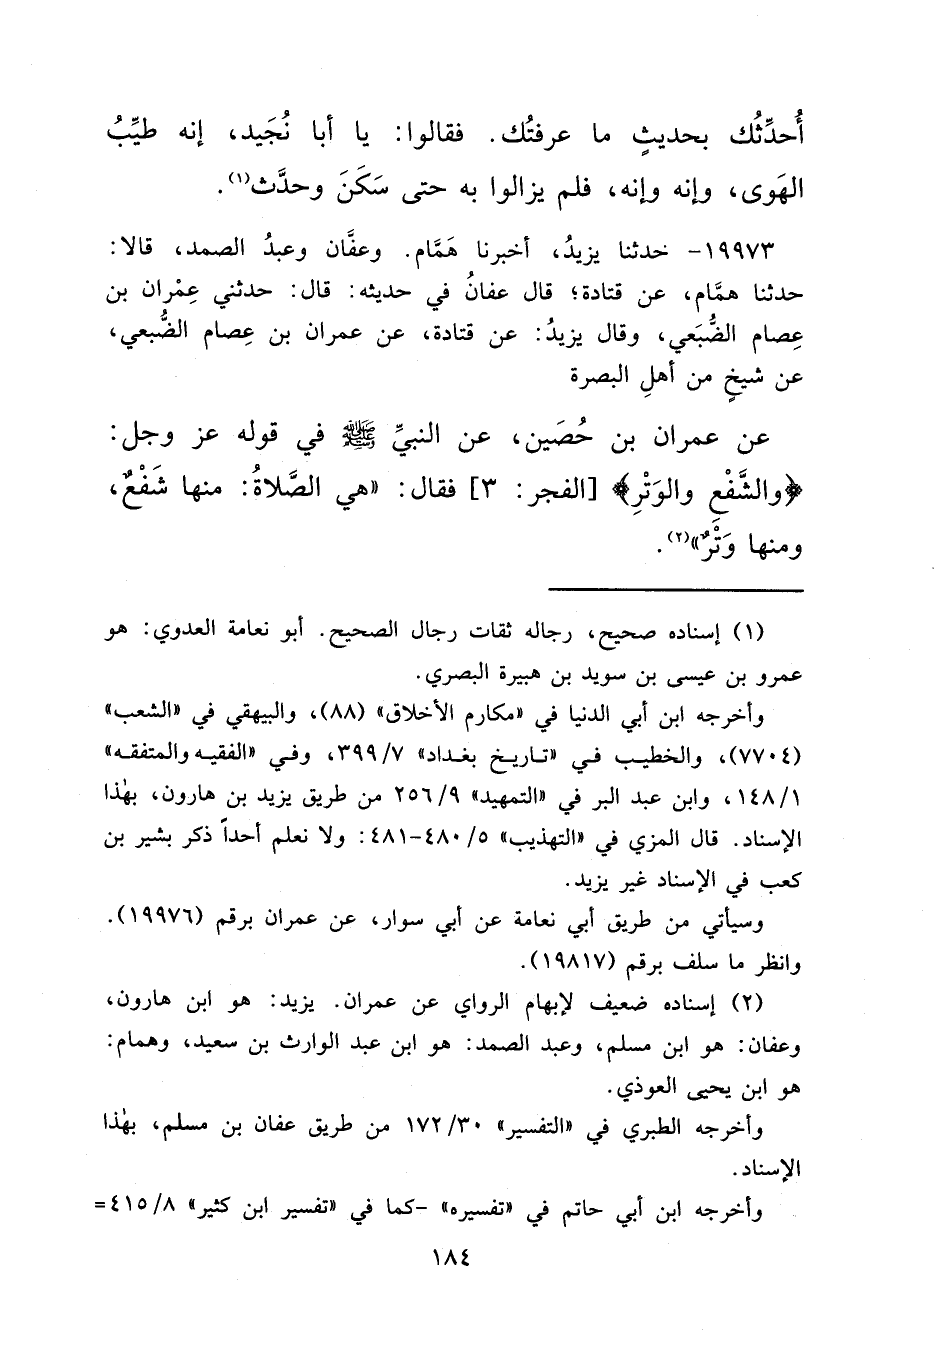 أُحدِّثُك بحديثٍ ما عرفتُك. فقالوا: يا أبا نُجَيد، إنه طيِّبُ
الهَوى، وإنه وإنه، فلم يزالوا به حتى سَكَنَ وحدَّث(١).
١٩٩٧٣- حدثنا يزيدُ، أخبرنا هَمَّام. وعفَّان وعبدُ الصمد، قالا:
حدثنا همَّام، عن قتادة؛ قال عفانُ في حديثه: قال: حدثني عِمْران بن
عِصام الضُّبَعي، وقال يزيدُ: عن قتادة، عن عمران بن عِصام الضُّبعي،
عن شيخٍ من أهلِ البصرة
عن عمران بن حُصَين، عن النبيِّ ﷺ في قوله عز وجل:
﴿والشَّفْعِ والوَتْرِ﴾ [الفجر: ٣] فقال: «هي الصَّلاةُ: منها شَفْعٌ،
ومنها وَتْرٌ»(٢).
(١) إسناده صحيح، رجاله ثقات رجال الصحيح. أبو نعامة العدوي: هو
عمرو بن عيسى بن سويد بن هبيرة البصري.
وأخرجه ابن أبي الدنيا في «مكارم الأخلاق» (٨٨)، والبيهقي في «الشعب»
(٧٧٠٤)، والخطيب في «تاريخ بغداد» ٣٩٩/٧، وفي «الفقيه والمتفقه»
١٤٨/١، وابن عبد البر في «التمهيد» ٢٥٦/٩ من طريق يزيد بن هارون، بهٰذا
الإسناد. قال المزي في «التهذيب» ٤٨٠/٥-٤٨١: ولا نعلم أحداً ذكر بشير بن
كعب في الإسناد غير يزيد.
وسيأتي من طريق أبي نعامة عن أبي سوار، عن عمران برقم (١٩٩٧٦).
وانظر ما سلف برقم (١٩٨١٧).
(٢) إسناده ضعيف لإبهام الرواي عن عمران. يزيد: هو ابن هارون،
وعفان: هو ابن مسلم، وعبد الصمد: هو ابن عبد الوارث بن سعيد، وهمام:
هو ابن يحيى العوذي.
وأخرجه الطبري في «التفسير» ١٧٢/٣٠ من طريق عفان بن مسلم، بهٰذا
الإسناد.
وأخرجه ابن أبي حاتم في «تفسيره» -كما في «تفسير ابن كثير» ٤١٥/٨=
١٨٤